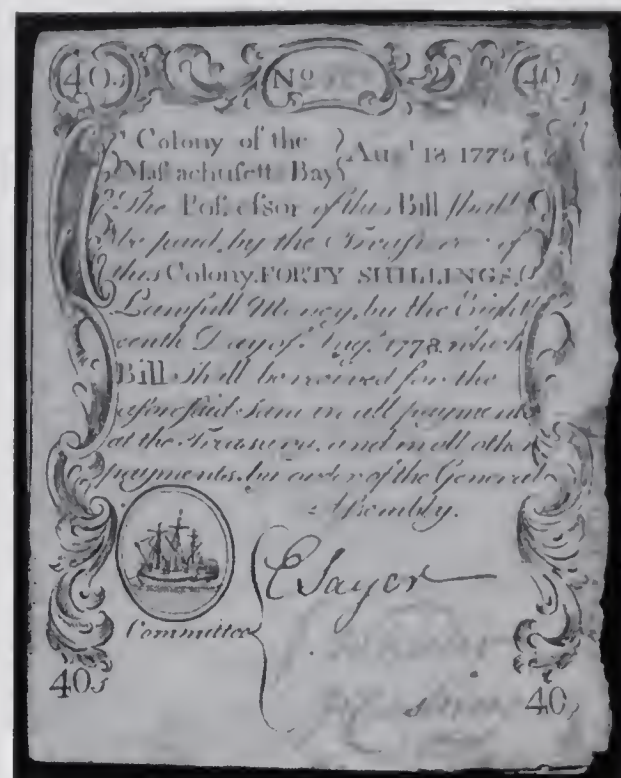 40s No 40s
Colony of the
Massachusett Bay Augst 18 1775
The Possessor of this Bill shall
be paid, by the Treasurer of
this Colony, FORTY SHILLINGS,
Lawfull Money, by the Eight
eenth Day of Augt. 1778, which
Bill shall be received for the
aforesaid Sum in all payments
at the Treasury, and in all other
payments, by order of the General
Assembly.
Committee
E Sayer
40s 40s